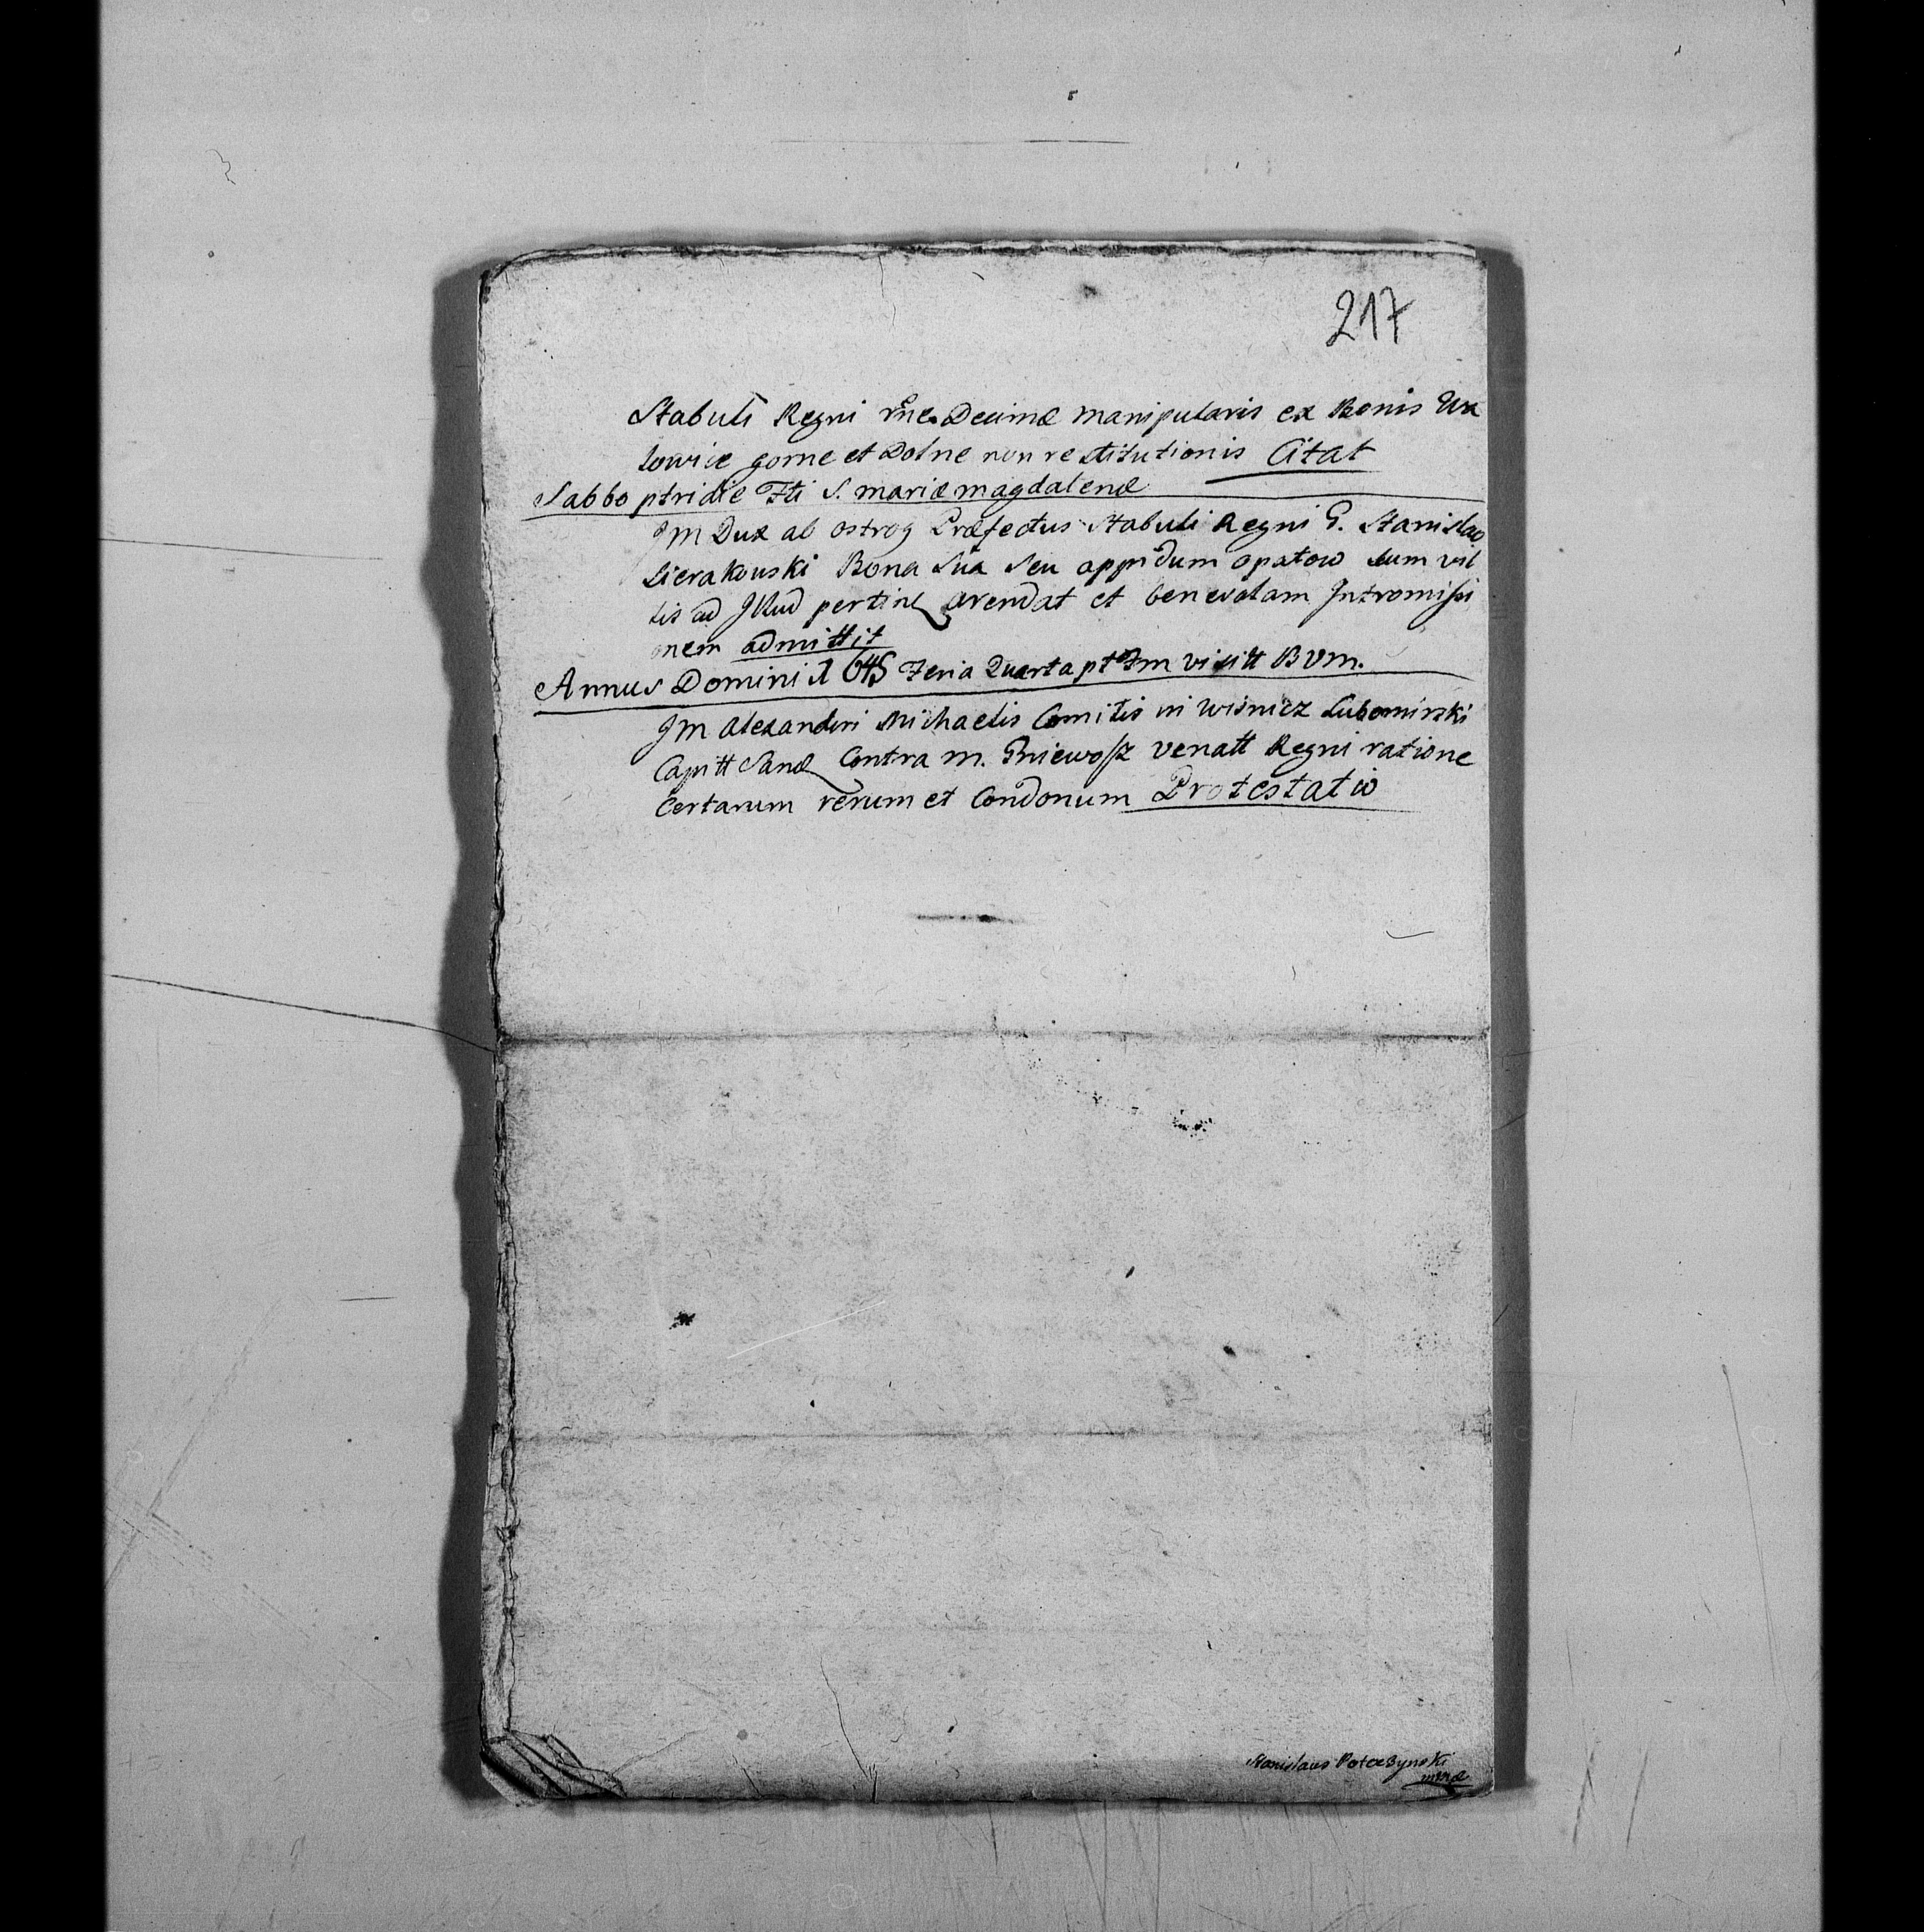 217
Stabuli Regni rñe Decimæ manipularis ex Bonis Wa
lowice gorne et Dolne non restitutionis Citat
Sabbo ptridie Fti S. mariæ magdalenæ
JM Dux ab ostrog Præfectus Stabuli Regni G. Stanislao
Sierakouski Bona Sua Seu oppidum opatow cum vil
lis ad Illud pertine arendat et benevolam Intromissi
onem admittit
Annus Domini 1645 Feria Quarta pt Fm visitt BVm.
JM Alexandri Michaelis Comitis in Wisnicz Lubomirski
Capitt Sand Contra m. Gniewosz venatt Regni ratione
Certarum rerum et Condonum Protestatio
Stanislaus Potoczynski